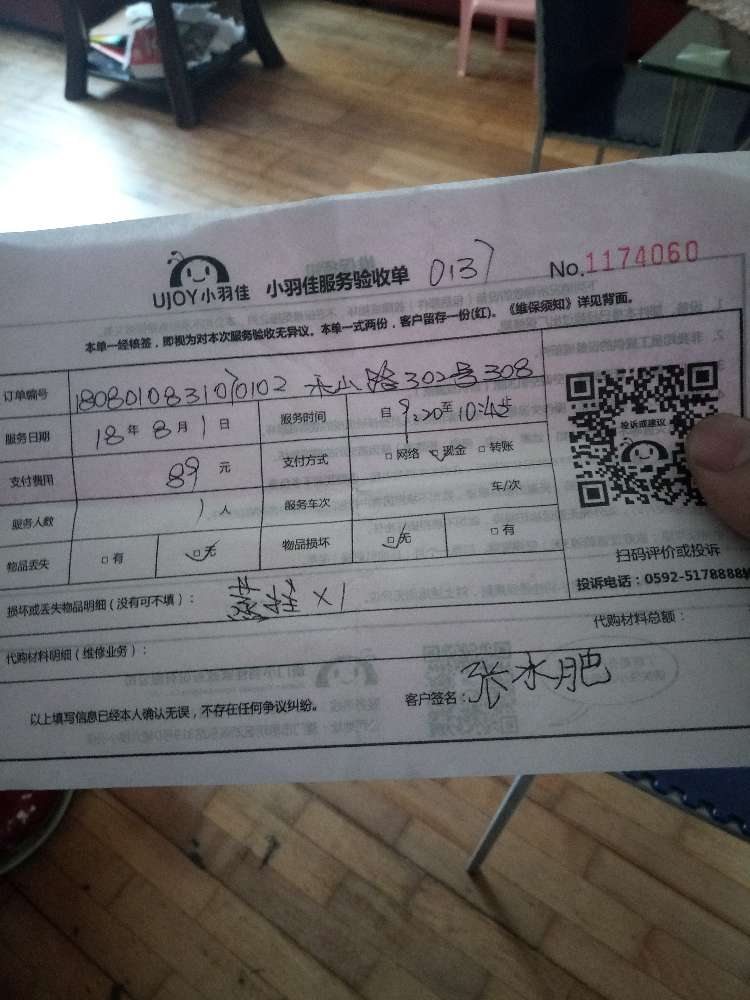 UJOY小羽佳 小羽佳服务验收单 0137 No.1174060
本单一经核签，即视为对本次服务验收无异议。本单一式两份，客户留存一份(红)。《维保须知》详见背面。
订单编号 302号308
服务日期 18年8月1日 服务时间 自9:20至10:45
支付费用 89元 支付方式 □网络 □现金 □转账
服务人数 1人 服务车次 车/次
物品丢失 □有 □无 物品损坏 □无 □有
投诉或建议
扫码评价或投诉
投诉电话：0592-5178888
损坏或丢失物品明细（没有可不填）： ×1
代购材料明细（维修业务）： 代购材料总额：
以上填写信息已经本人确认无误，不存在任何争议纠纷。 客户签名：张水肥